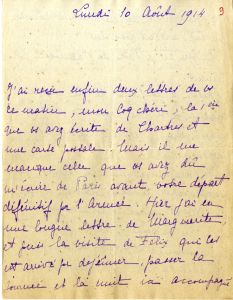 Lundi 10 Août 1914 9
J'ai reçu enfin deux lettres de vs
ce matin, mon Coq chéri, la 1ère
que vs avez écrite de Chartres et
une carte postale. Mais il me
manque celle que vs avez dû
m'écrire de Paris avant votre départ
définitif pr l'Armée. Hier j'ai eu
une longue lettre de Marguerite
et puis la visite de Félix qui
est arrivé pr déjeuner, passer la
journée et la nuit a accompagné